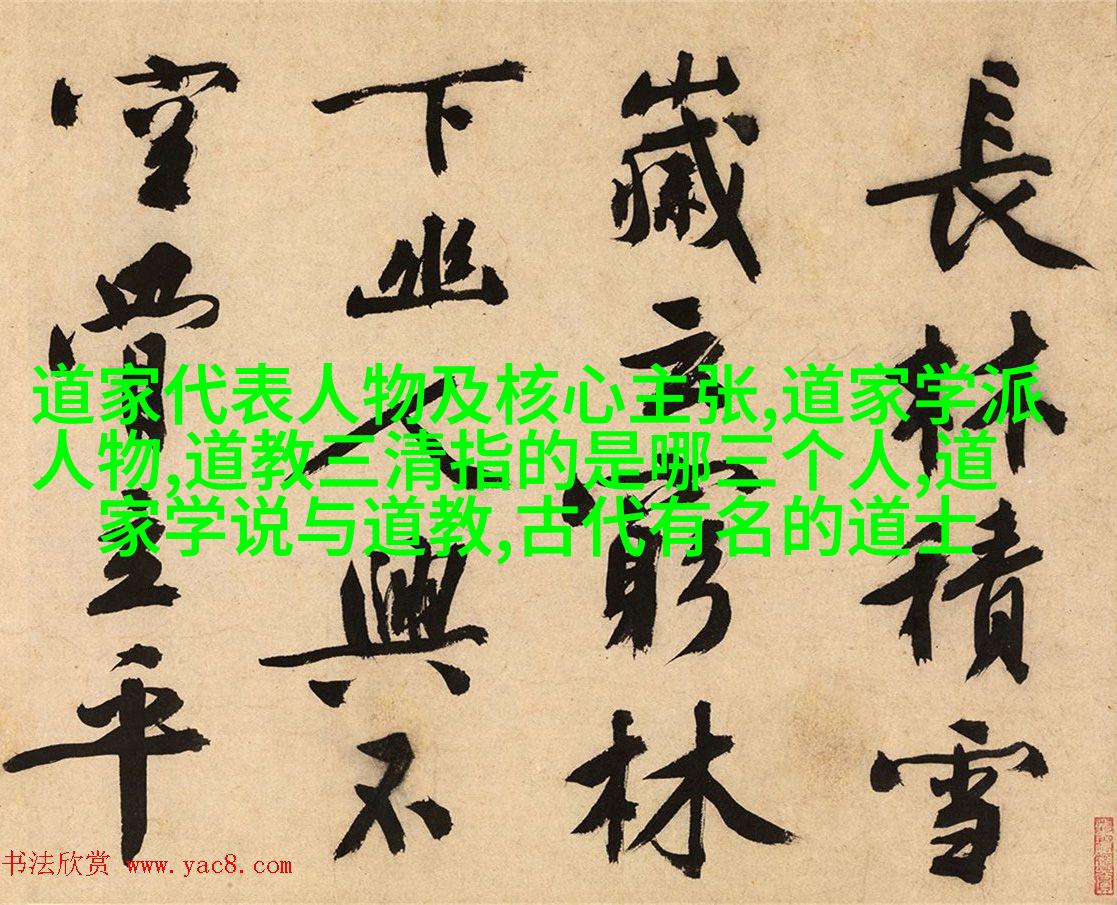 長林積雪
歲云窮林
下幽人興不
空買平
道家代表人物及核心主张,道家学派
人物,道教三清指的是哪三个人,道
家学说与道教,古代有名的道士
书法欣赏 www.yac8.com